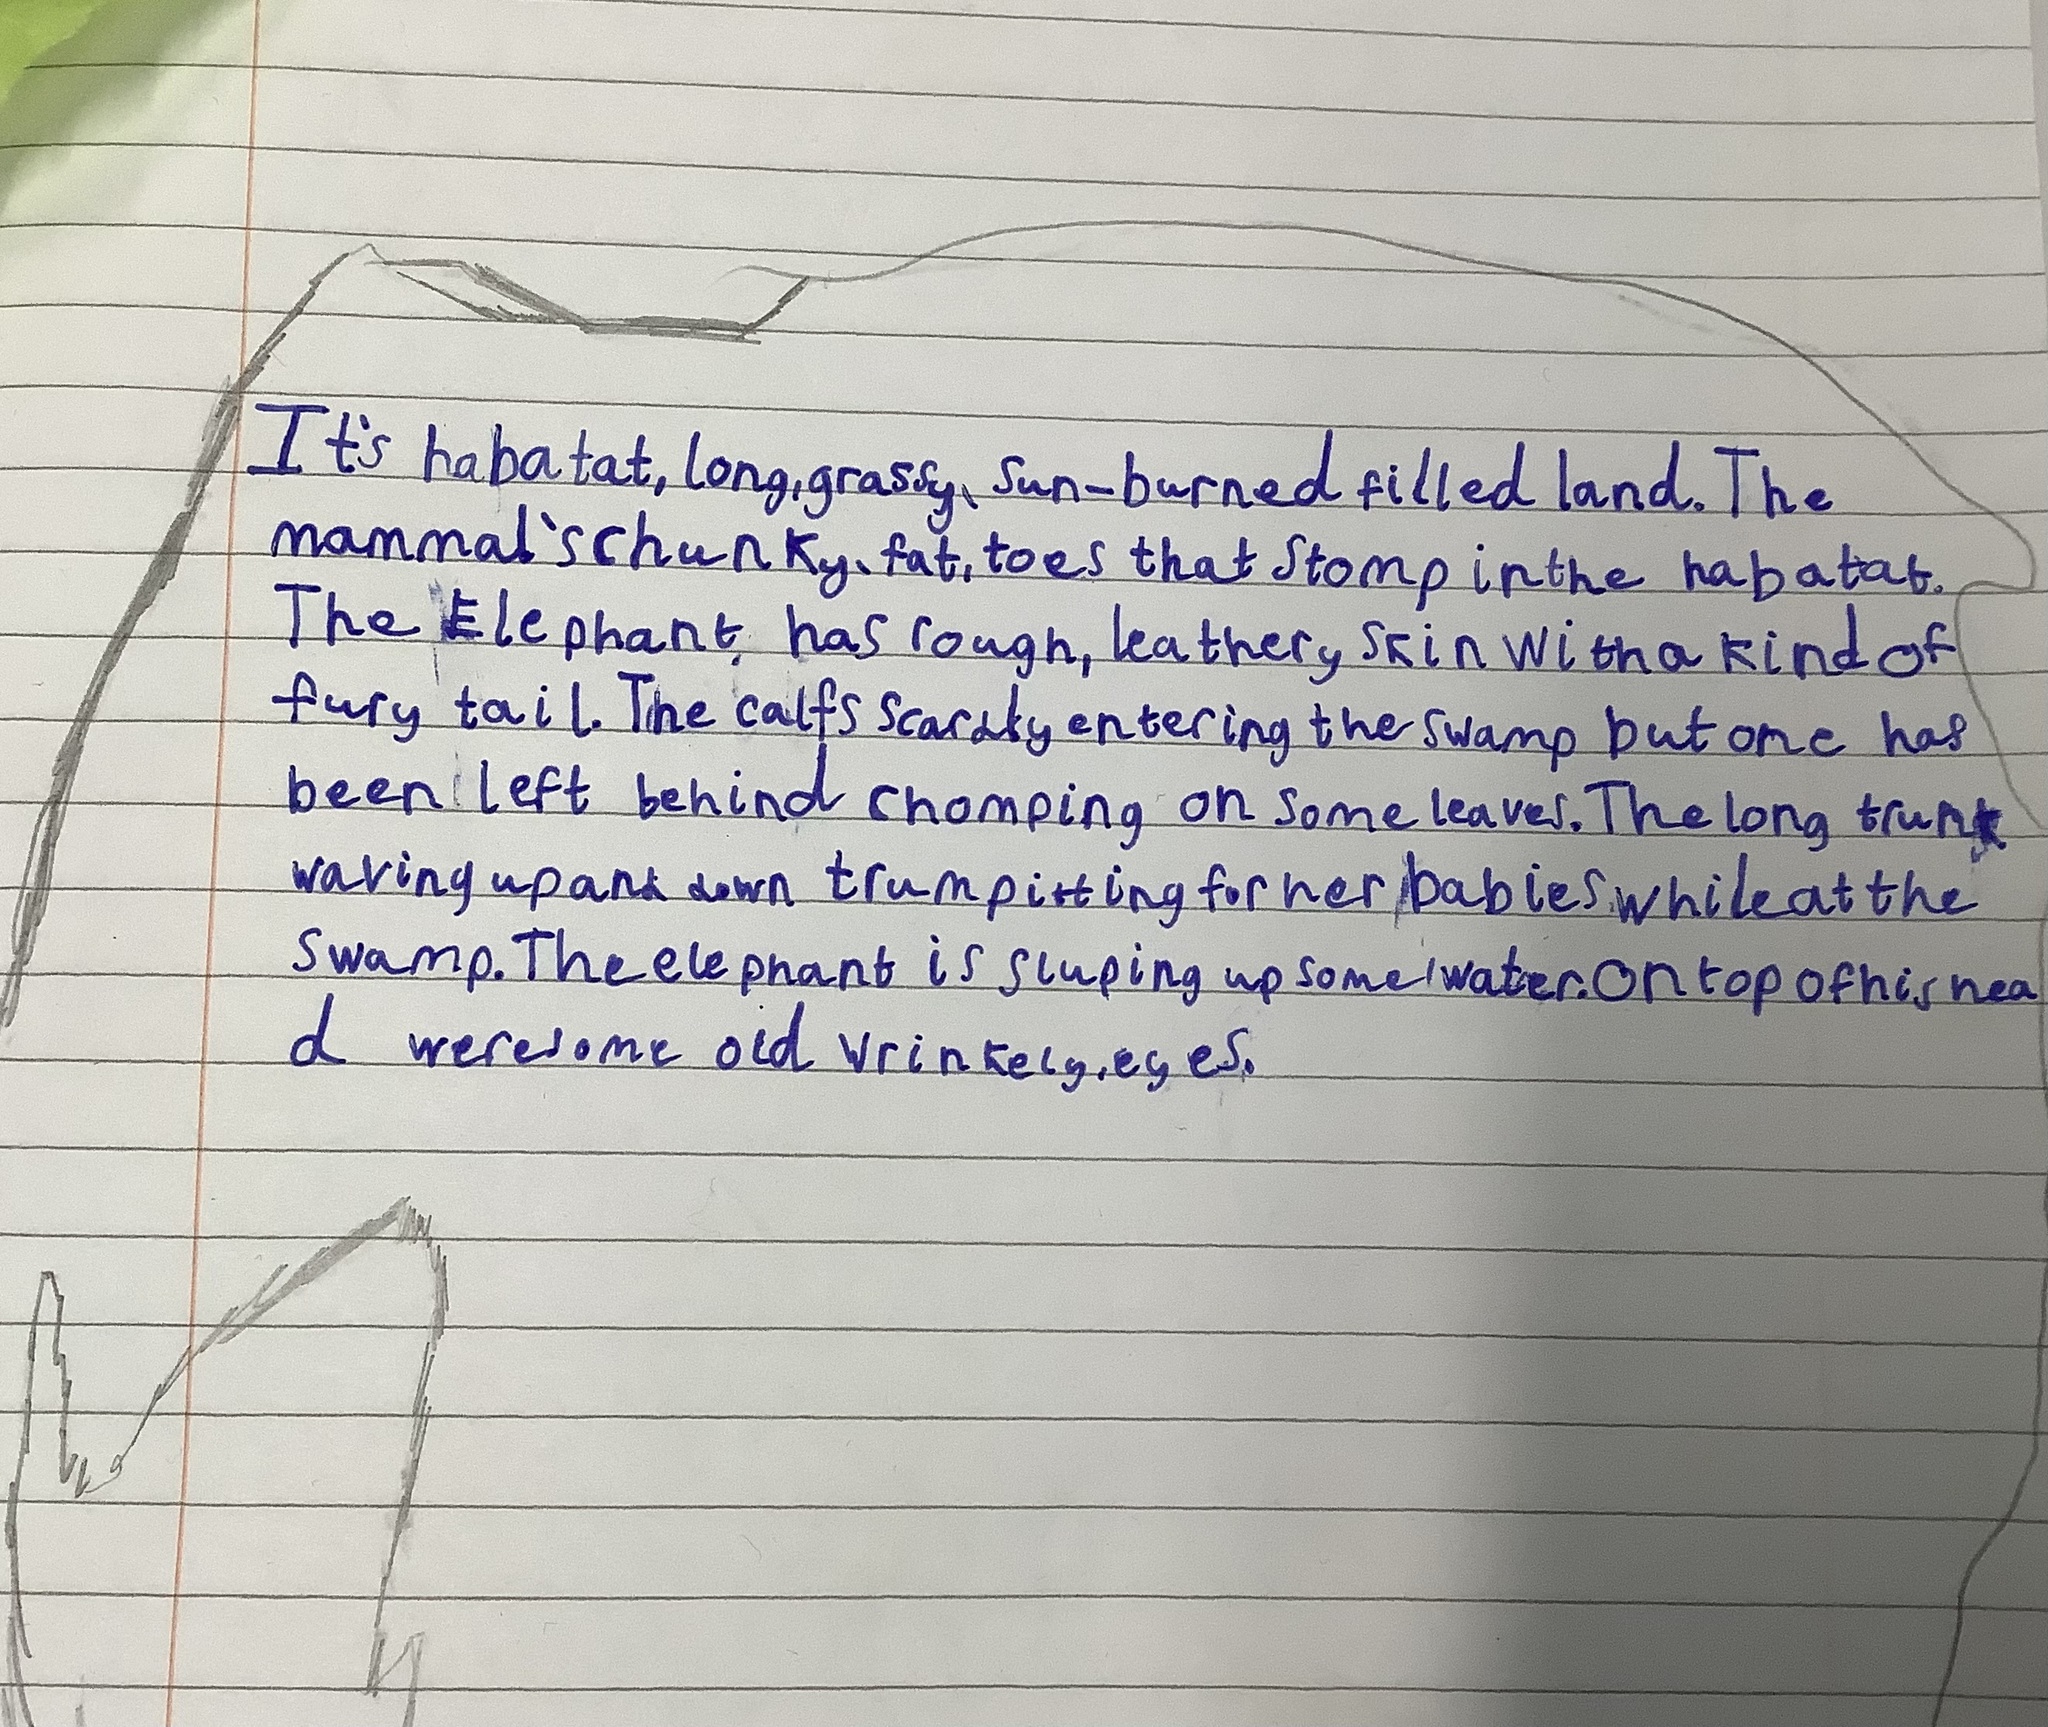 It's habatat, long, grassy, sun-burned filled land. The
mammal's chunky, fat, toes that stomp in the habatat.
The Elephant, has rough, leathery skin with a kind of
fury tail. The calfs entering the swamp but one has
been left behind chomping on some leaves. The long trunk
waving up and down trumpitting for her babies while at the
swamp. The elephant is sluping up some water. On top of his hea
d were some old wrinkely, eyes.